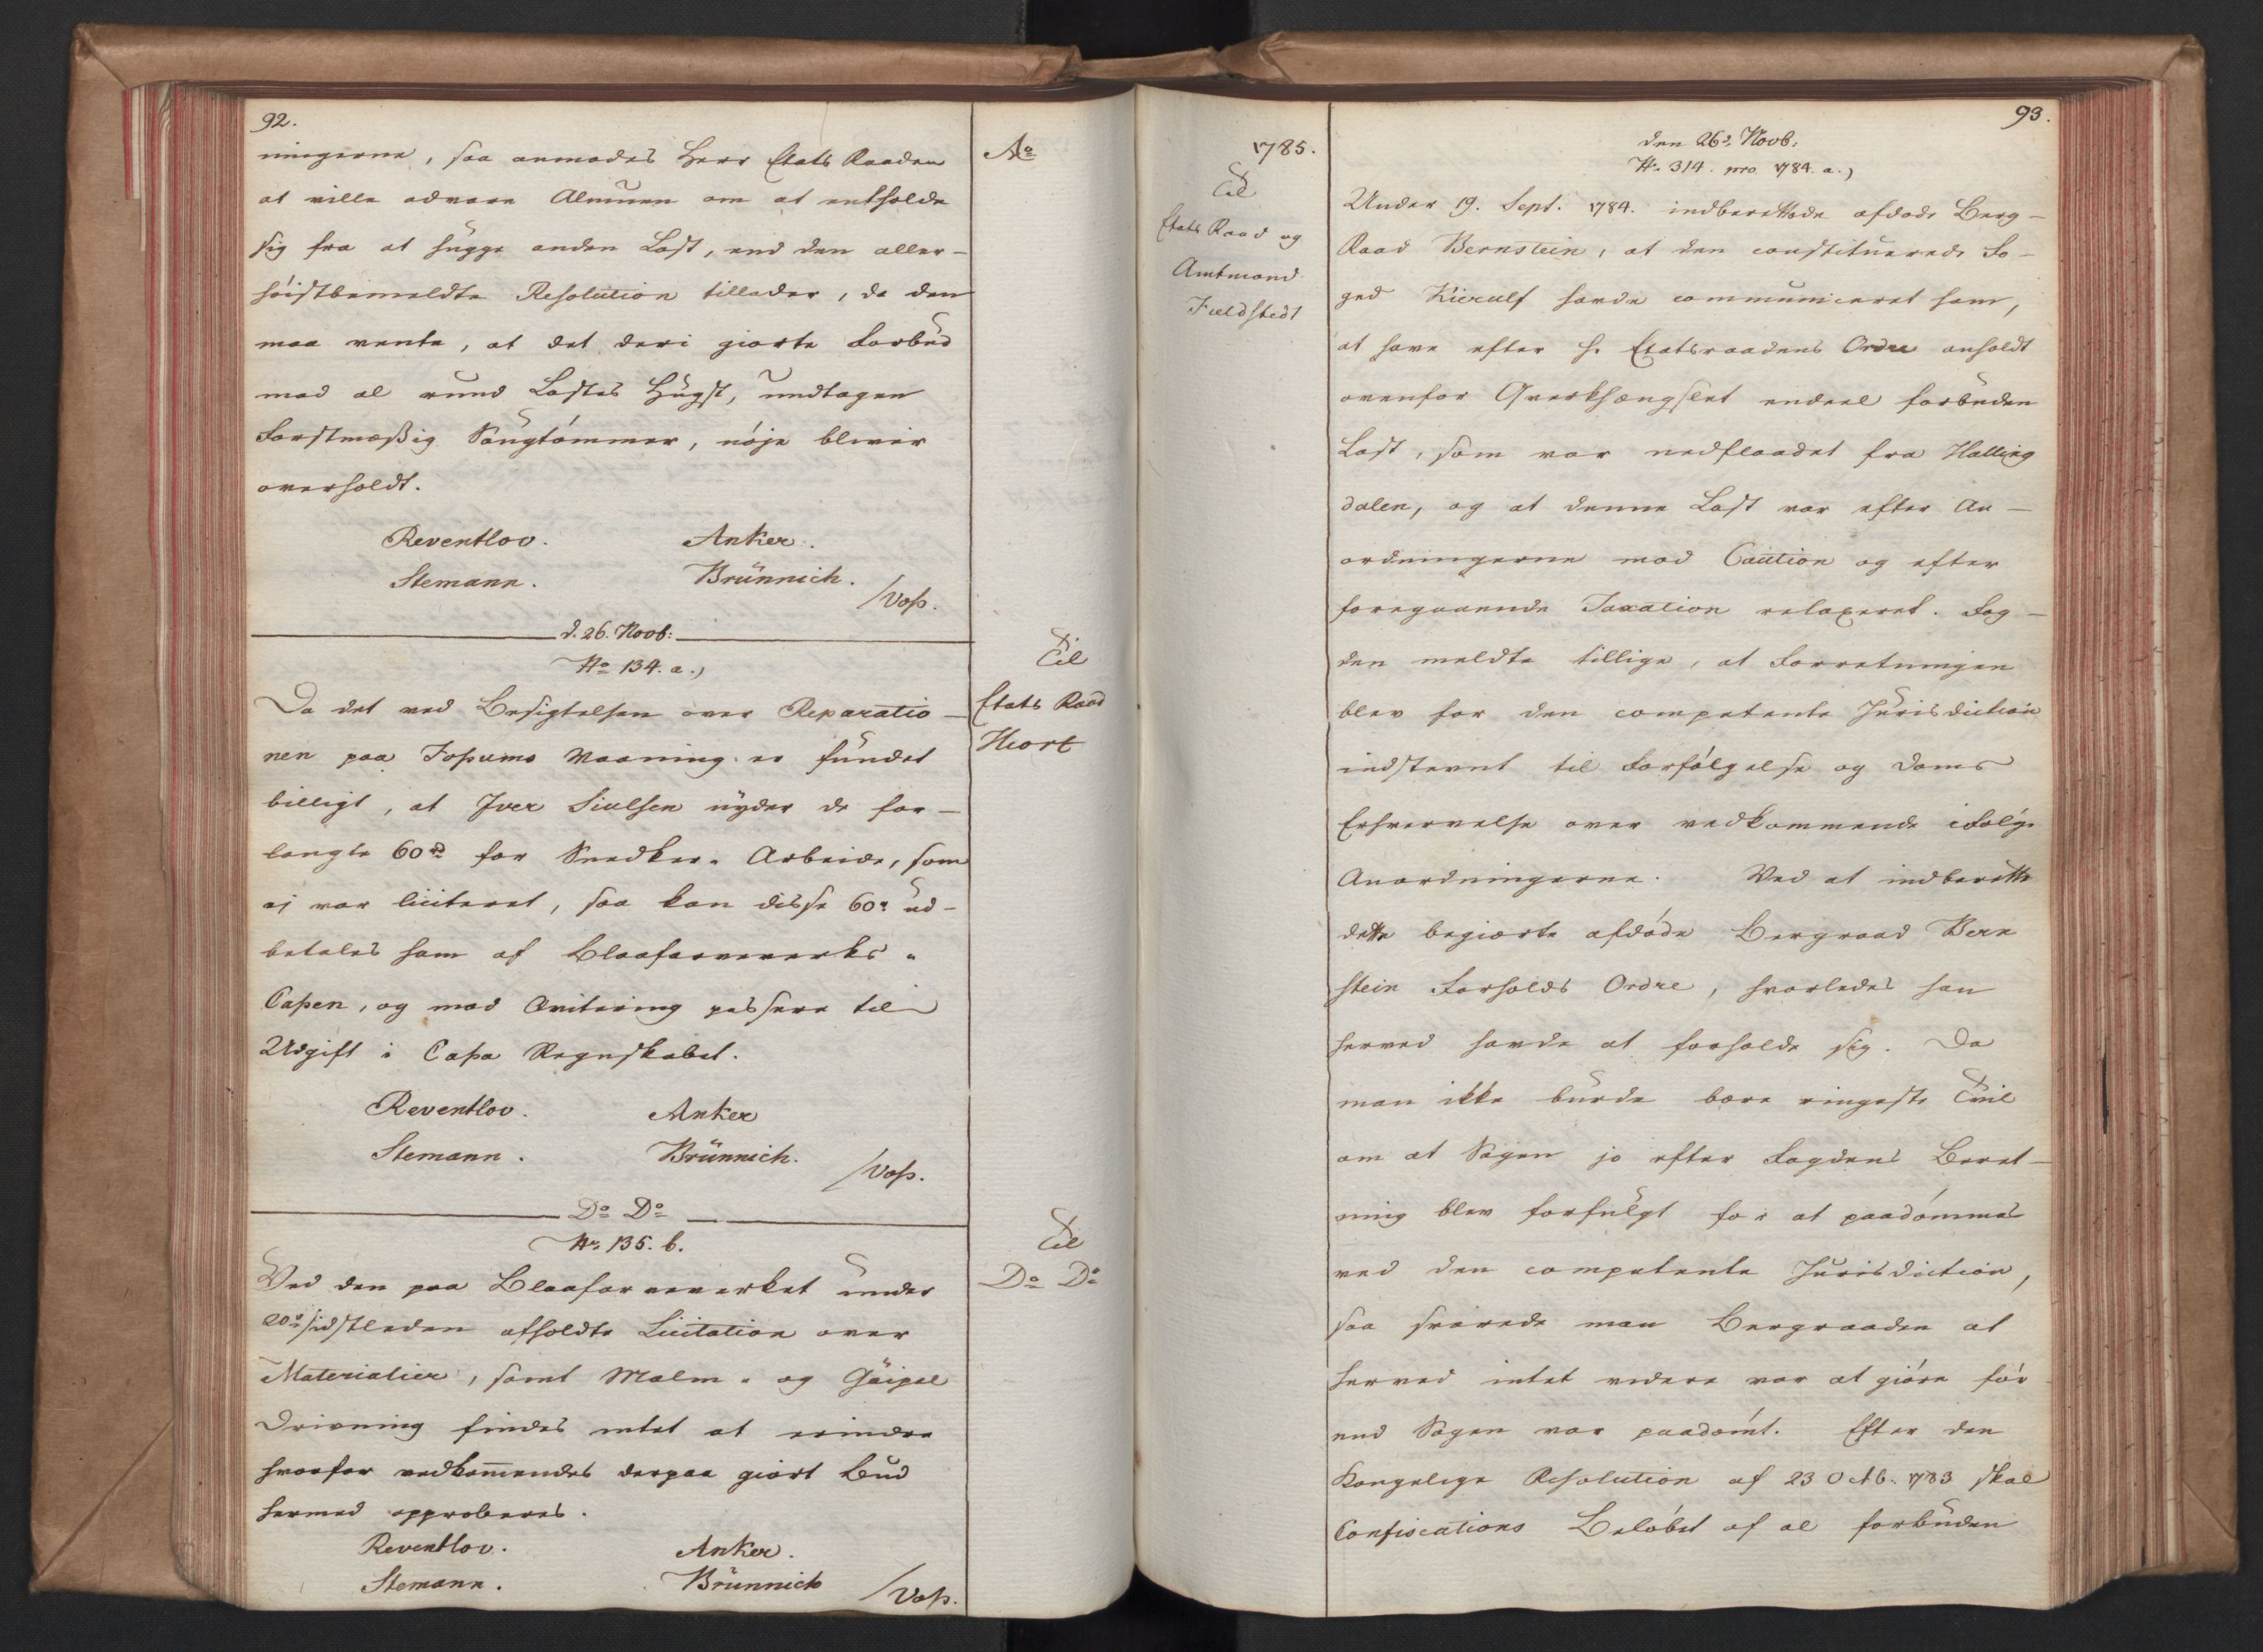 92.
ningerne, saa anmodes Herr Etats Raaden
at ville advare Almuen om at entholde
sig fra at hugge anden Last, end den aller-
høistbemeldte Resolution tillader, da den
maa vente, at det deri giorte Forbud
mod al rund Lastes Hugst, undtagen
Forstmæssig Saugtømmer, nøje bliver
overholdt.
Reventlov. Anker.
Stemann. Brünnich.
/Voss.
d. 26. Novb:
No 134. a.)
Da det ved Besigtelsen over Reparatio-
nen paa Fossums Vaaning er fundet
billigt, at Iver Siulsen nyder de for-
langte 60 rd for Snedker-Arbeide, som
ej var liciteret, saa kan disse 60 r ud-
betales ham af Blaafarveverks-
Cassen, og mod Qvitering passere til
Udgift i Cassa Regnskabet.
Reventlov. Anker
Stemann. Brünnich.
/Voss.
Do Do
No 135. b.
Ved den paa Blaafarveverket under
20de sidstleden afholdte Licitation over
Materialier, samt Malm- og Gaipel
Drivning findes intet at erindre
hvorfor vedkommendes derpaa giort Bud
hermed approberes.
Reventlov. Anker.
Stemann. Brünnich
/Voss.
Ao
Til
Etats Raad
Hiort
Til
Do Do
1785.
Til
Etats Raad og
Amtmand
Fieldstedt
93.
den 26de Novb:
No 314. pro 1784. a.)
Under 19. Sept. 1784. indberettede afdøde Berg-
Raad Bernstein, at den constituerede Fo-
ged Kierulf havde communiceret ham,
at have efter H. Etatsraadens Ordre anholdt
ovenfor Qverkhængslet endeel forbuden
Last, som var nedflaadet fra Halling
dalen, og at denne Last var efter An-
ordningerne mod Caution og efter
foregaaende Taxation relaxeret. Fog-
den meldte tillige, at Forretningen
blev for den competente Jurisdiction
indstevnt til Forfølgelse og Doms
Erhvervelse over vedkommende ifølge
Anordningerne. Ved at indberette
dette begiærte afdøde Bergraad Bern
stein Forholds Ordre, hvorledes han
herved havde at forholde sig. Da
man ikke burde bære ringeste Tvil
om at Sagen jo efter Fogdens Beret-
ning blev forfulgt for at paadømmes
ved den competente Jurisdiction,
saa svarede man Bergraaden at
herved intet videre var at giøre før
end Sagen var paadømt. Efter den
Kongelige Resolution af 23 Octb. 1783 skal
Confiscations Beløbet af al forbuden